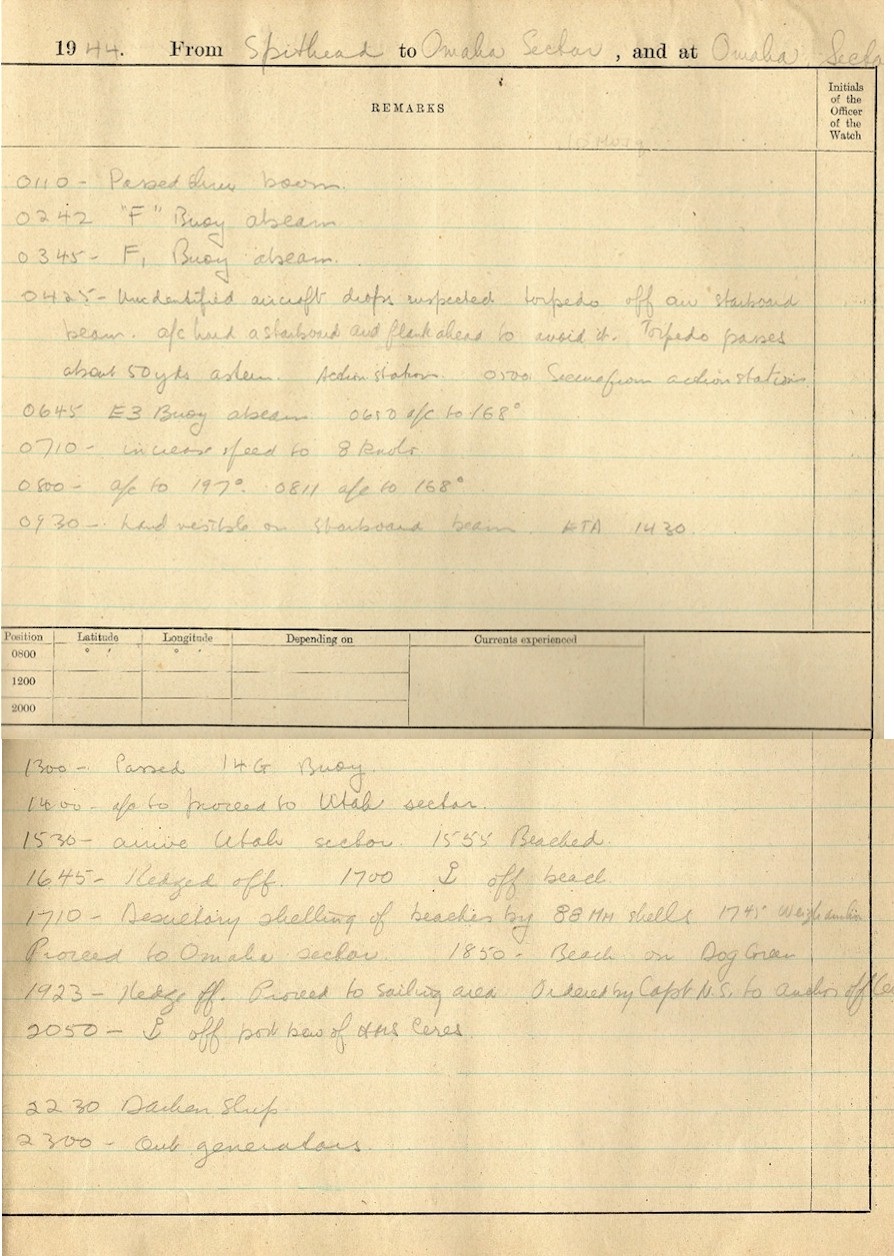 1944. From Spithead to Omaha Sector, and at Omaha Secto
REMARKS
Initials
of the
Officer
of the
Watch
0110 - Passed thru boom.
0242 "F" Buoy abeam
0345 - F1 Buoy abeam.
0425 - Unidentified aircraft drops suspected torpedo off our starboard
beam. a/c hard a starboard and flank ahead to avoid it. Torpedo passes
about 50 yds astern. Action stations. 0500 Secure from action stations
0645 E3 Buoy abeam 0650 a/c to 168°
0710 - increase speed to 8 knots
0800 - a/c to 197°. 0811 a/c to 168°
0930 - Land visible on starboard beam. ETA 1430.
Position Latitude Longitude Depending on Currents experienced
0800 ° ′ ° ′
1200
2000
1300 - Passed 14G Buoy.
1400 - a/c to proceed to Utah sector.
1530 - arrive Utah sector. 1555 Beached.
1645 - Kedged off. 1700 ⚓ off beach
1710 - Desultory shelling of beaches by 88 MM shells 1745 Weigh anchor
Proceed to Omaha sector. 1850 - Beach on Dog Green
1923 - Kedge off. Proceed to sailing area Ordered by Capt N.S. to anchor off Ce
2050 - ⚓ off port bow of HMS Ceres.
2230 Darken Ship.
2300 - Out generators.